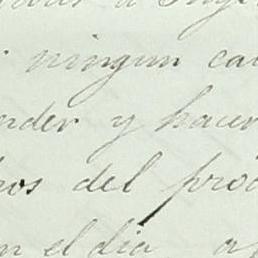 a
ningun ca
nder y hacer
os del pro
n el dia a